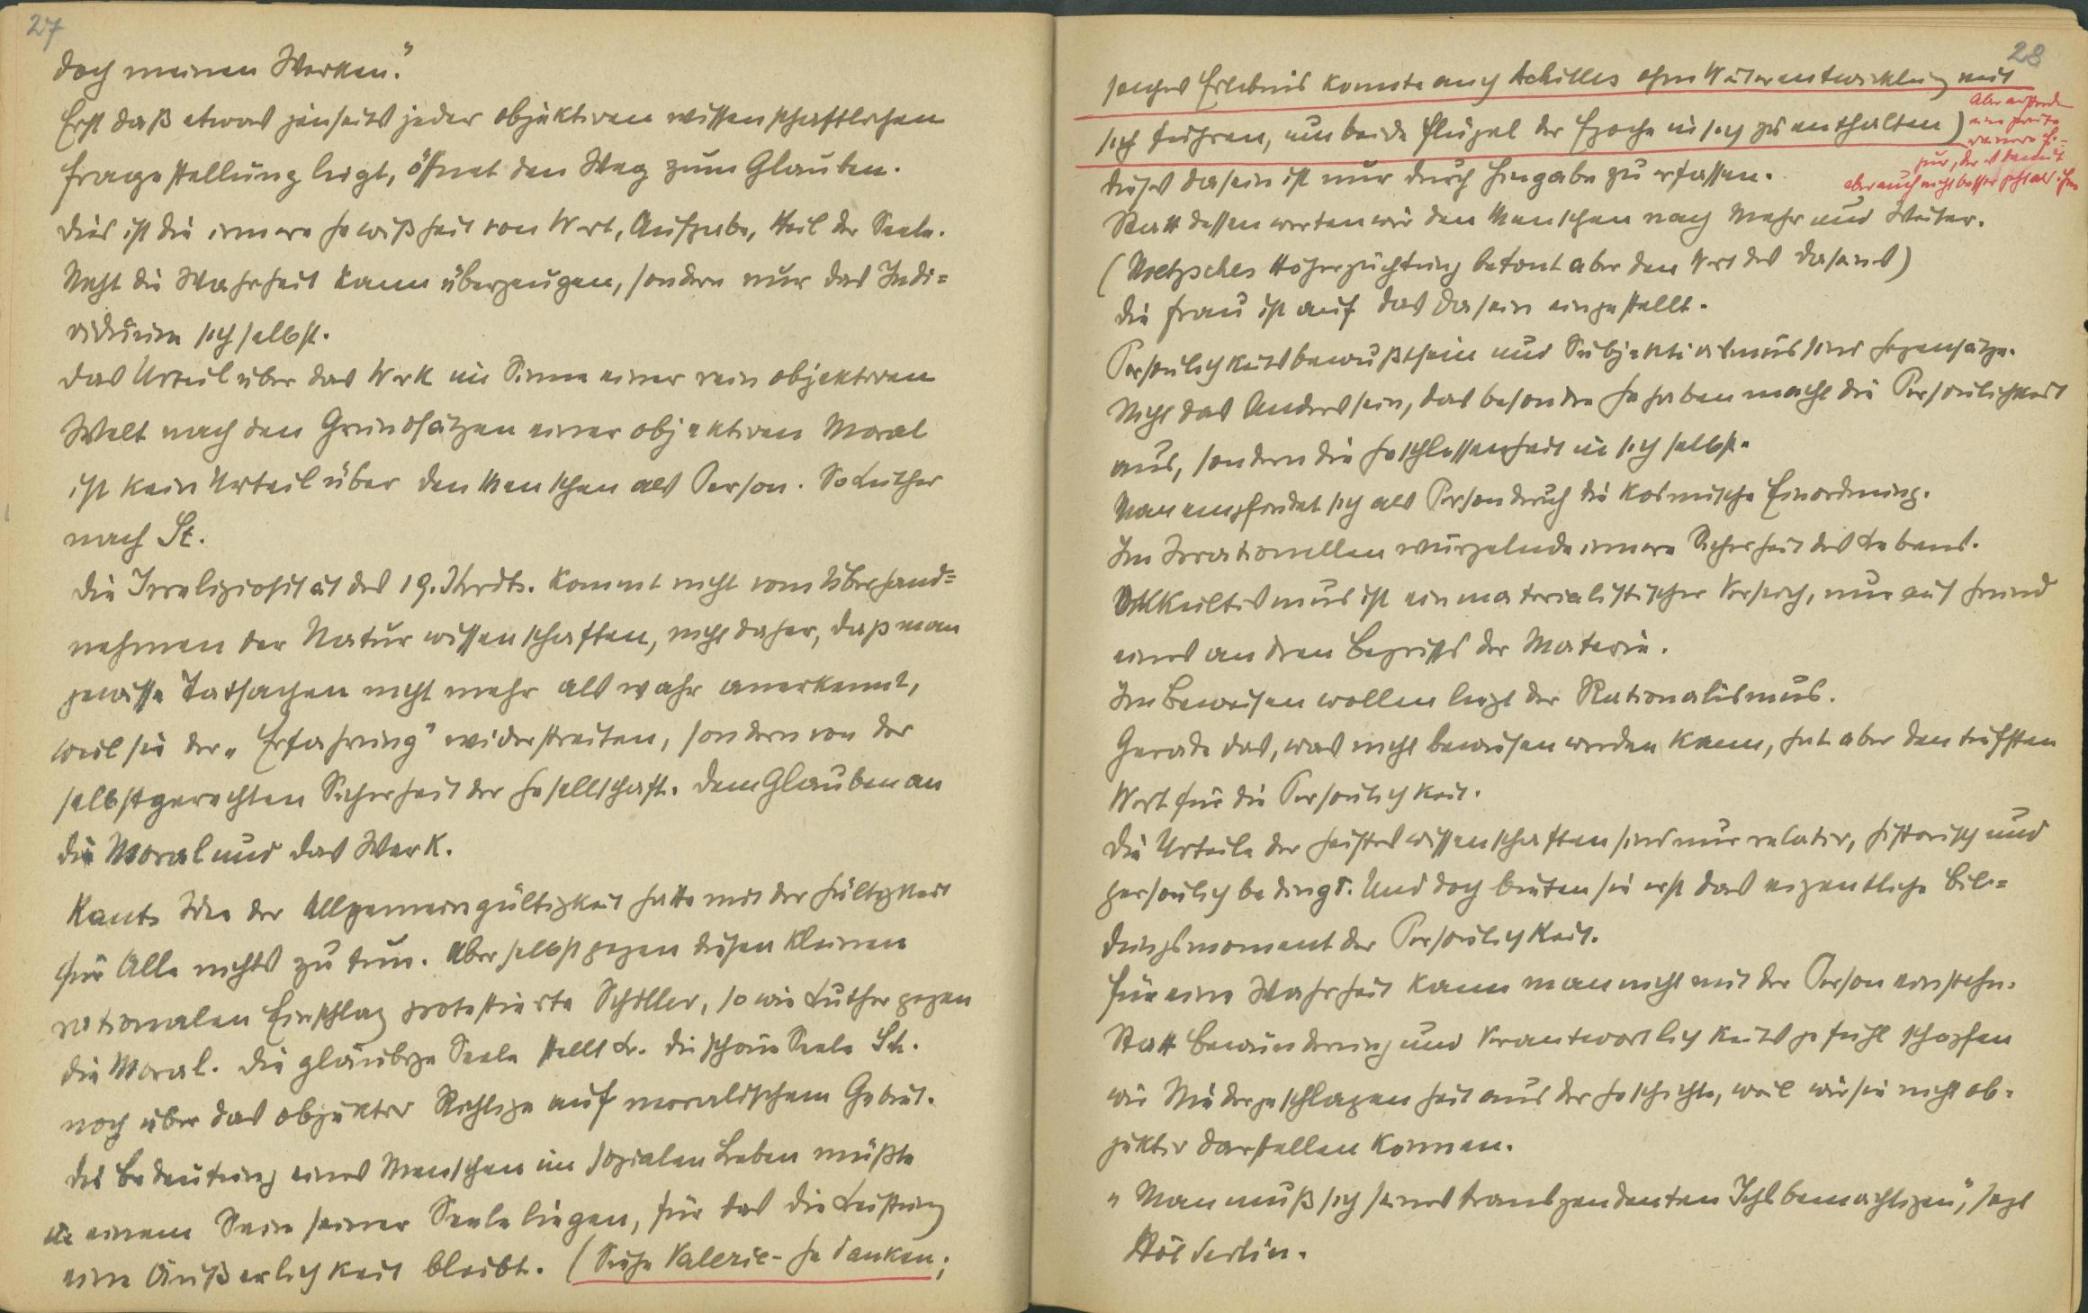 27
doch meinen Werken."
Erst daß etwas jenseits jeder objektiven wissenschaftlichen
Fragestellung liegt, öffnet den Weg zum Glauben.
Dies ist die innere Gewißheit von Wert, Aufgabe, Heil der Seele.
Nicht die Wahrheit kann überzeugen, sondern nur das Indi=
viduum sich selbst.
Das Urteil über das Werk im Sinne einer rein objektiven
Welt nach den Grundsätzen einer objektiven Moral
ist kein Urteil über den Menschen als Person. So Luther
nach St.
Die Irreligiosität des 19. Jhrdts. kommt nicht vom Überhand=
nehmen der Naturwissenschaften, nicht daher, daß man
gewisse Tatsachen nicht mehr als wahr anerkennt,
weil sie der „Erfahrung" widerstreiten, sondern von der
selbstgerechten Sicherheit der Gesellschaft. Dem Glauben an
die Moral und das Werk.
Kants Idee der Allgemeingültigkeit hatte mit der Gültigkeit
für Alle nichts zu tun. Aber selbst gegen diesen kleinen
rationalen Einschlag protestierte Schiller, so wie Luther gegen
die Moral. Die gläubige Seele stellt L. die schöne Seele Sch.
noch über das objektiv Richtige auf moralischem Gebiet.
Die Bedeutung eines Menschen im sozialen Leben müßte
in einem Sein seiner Seele liegen, für das die Leistung
eine Äußerlichkeit bleibt. (Siehe Valerie-Gedanken;
28
solches Erlebnis konnte auch Achilles ohne Weiterentwicklung mit
sich führen, um beide Flügel der Epoche in sich zu enthalten)
Aber außerdem
eine zweite
gur, der ist damit
aber auch nicht besser
Dieses Dasein ist nur durch Hingabe zu erfassen.
Statt dessen werten wir den Menschen nach Mehr und Weiter.
(Nietzsches Höherzüchtung betont aber den Wert des Daseins)
Die Frau ist auf das Dasein eingestellt.
Persönlichkeitsbewußtsein und Subjektivismus sind Gegensätze.
Nicht das Anderssein, das besondre Gehaben macht die Persönlichkeit
aus, sondern die Geschlossenheit in sich selbst.
Man empfindet sich als Person durch die kosmische Einordnung.
Im Irrationellen wurzelnde innere Sicherheit des Lebens.
Okkultismus ist ein materialistischer Versuch, nur auf Grund
eines andren Begriffs der Materie.
Im Beweisen wollen liegt der Rationalismus.
Gerade das, was nicht bewiesen werden kann, hat aber den tiefsten
Wert für die Persönlichkeit.
Die Urteile der Geisteswissenschaften sind nur relativ, historisch und
persönlich bedingt. Und doch bieten sie erst das eigentliche Bil=
dungsmoment der Persönlichkeit.
Für eine Wahrheit kann man nicht mit der Person einstehn.
Statt Bewunderung und Verantwortlichkeitsgefühl schöpfen
wir Niedergeschlagenheit aus der Geschichte, weil wir sie nicht ob=
jektiv darstellen können.
„Man muß sich seines transzendenten Ichs bemächtigen", sagt
Hölderlin.